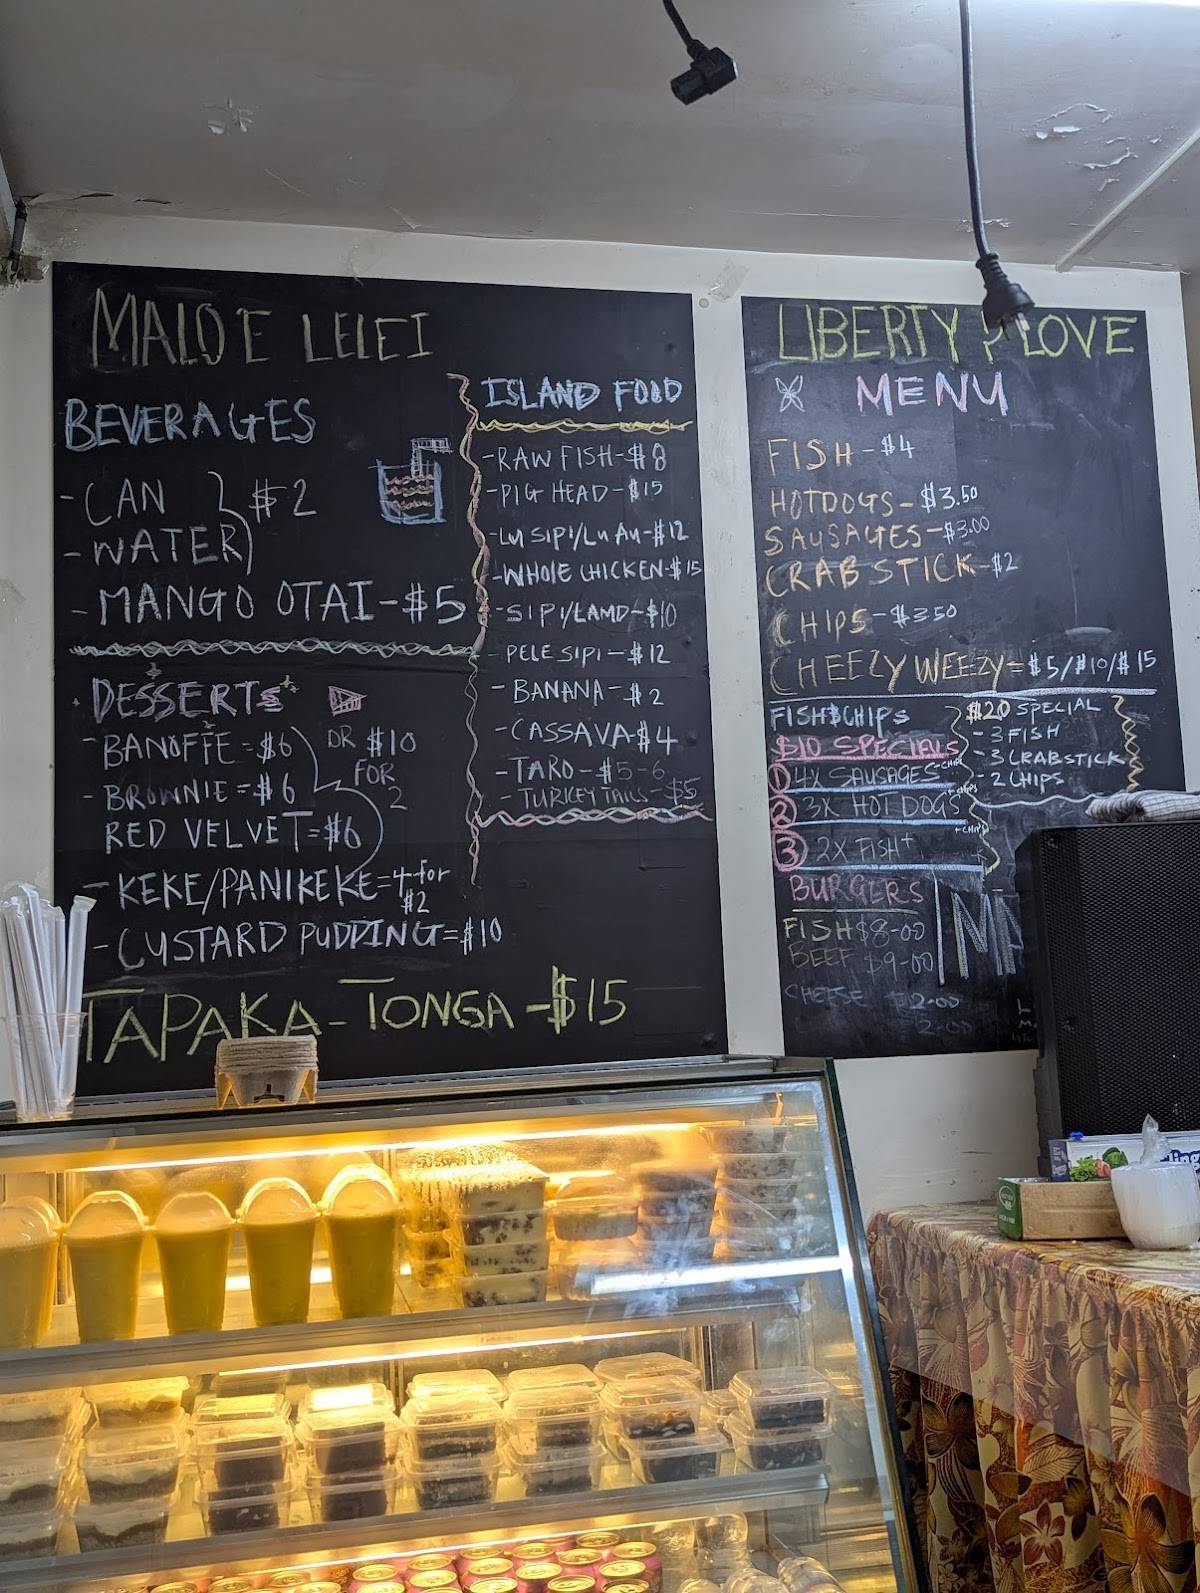 MALO E LELEI
BEVERAGES
- CAN
- WATER
$2
- MANGO OTAI - $5
DESSERTS
- BANOFFE = $6
- BROWNIE = $6
RED VELVET = $6
OR $10
FOR
2
- KEKE/PANIKEKE = 4 for
$2
- CUSTARD PUDDING = $10
TAPAKA - TONGA - $15
ISLAND FOOD
- RAW FISH - $8
- PIG HEAD - $15
- LU SIPI/LU AU - $12
- WHOLE CHICKEN - $15
- SIPI/LAMD - $10
- PELE SIPI - $12
- BANANA - $2
- CASSAVA - $4
- TARO - $5-6
- TURKEY TAILS - $5
LIBERTY LOVE
MENU
FISH - $4
HOTDOGS - $3.50
SAUSAGES - $3.00
CRAB STICK - $2
CHIPS - $3.50
CHEEZY WEEZY = $5/$10/$15
FISH $ CHIPS
$10 SPECIALS
1 4X SAUSAGES + CHIPS
2 3X HOT DOGS + CHIPS
3 2X FISH + CHIPS
$20 SPECIAL
- 3 FISH
- 3 CRABSTICK
- 2 CHIPS
BURGERS
FISH $8-00
BEEF $9-00
CHEESE 2-00
2-00